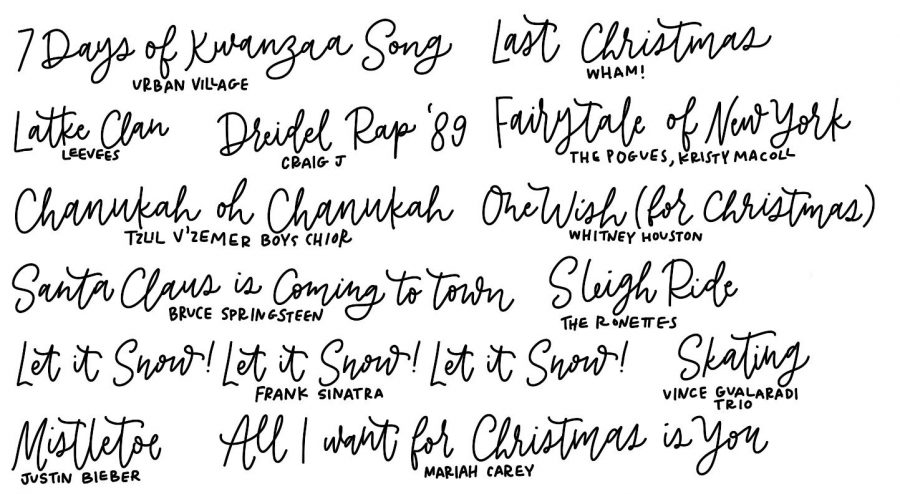 7 Days of Kwanzaa Song
URBAN VILLAGE
Last Christmas
WHAM!
Latke Clan
LEEVEES
Dreidel Rap '89
CRAIG J
Fairytale of New York
THE POGUES, KRISTY MACOLL
Chanukah oh Chanukah
TZUL V'ZEMER BOYS CHIOR
One Wish (for Christmas)
WHITNEY HOUSTON
Santa Claus is Coming to town
BRUCE SPRINGSTEEN
Sleigh Ride
THE RONETTES
Let it Snow! Let it Snow! Let it Snow!
FRANK SINATRA
Skating
VINCE GUALARADI
TRIO
Mistletoe
JUSTIN BIEBER
All I want for Christmas is You
MARIAH CAREY